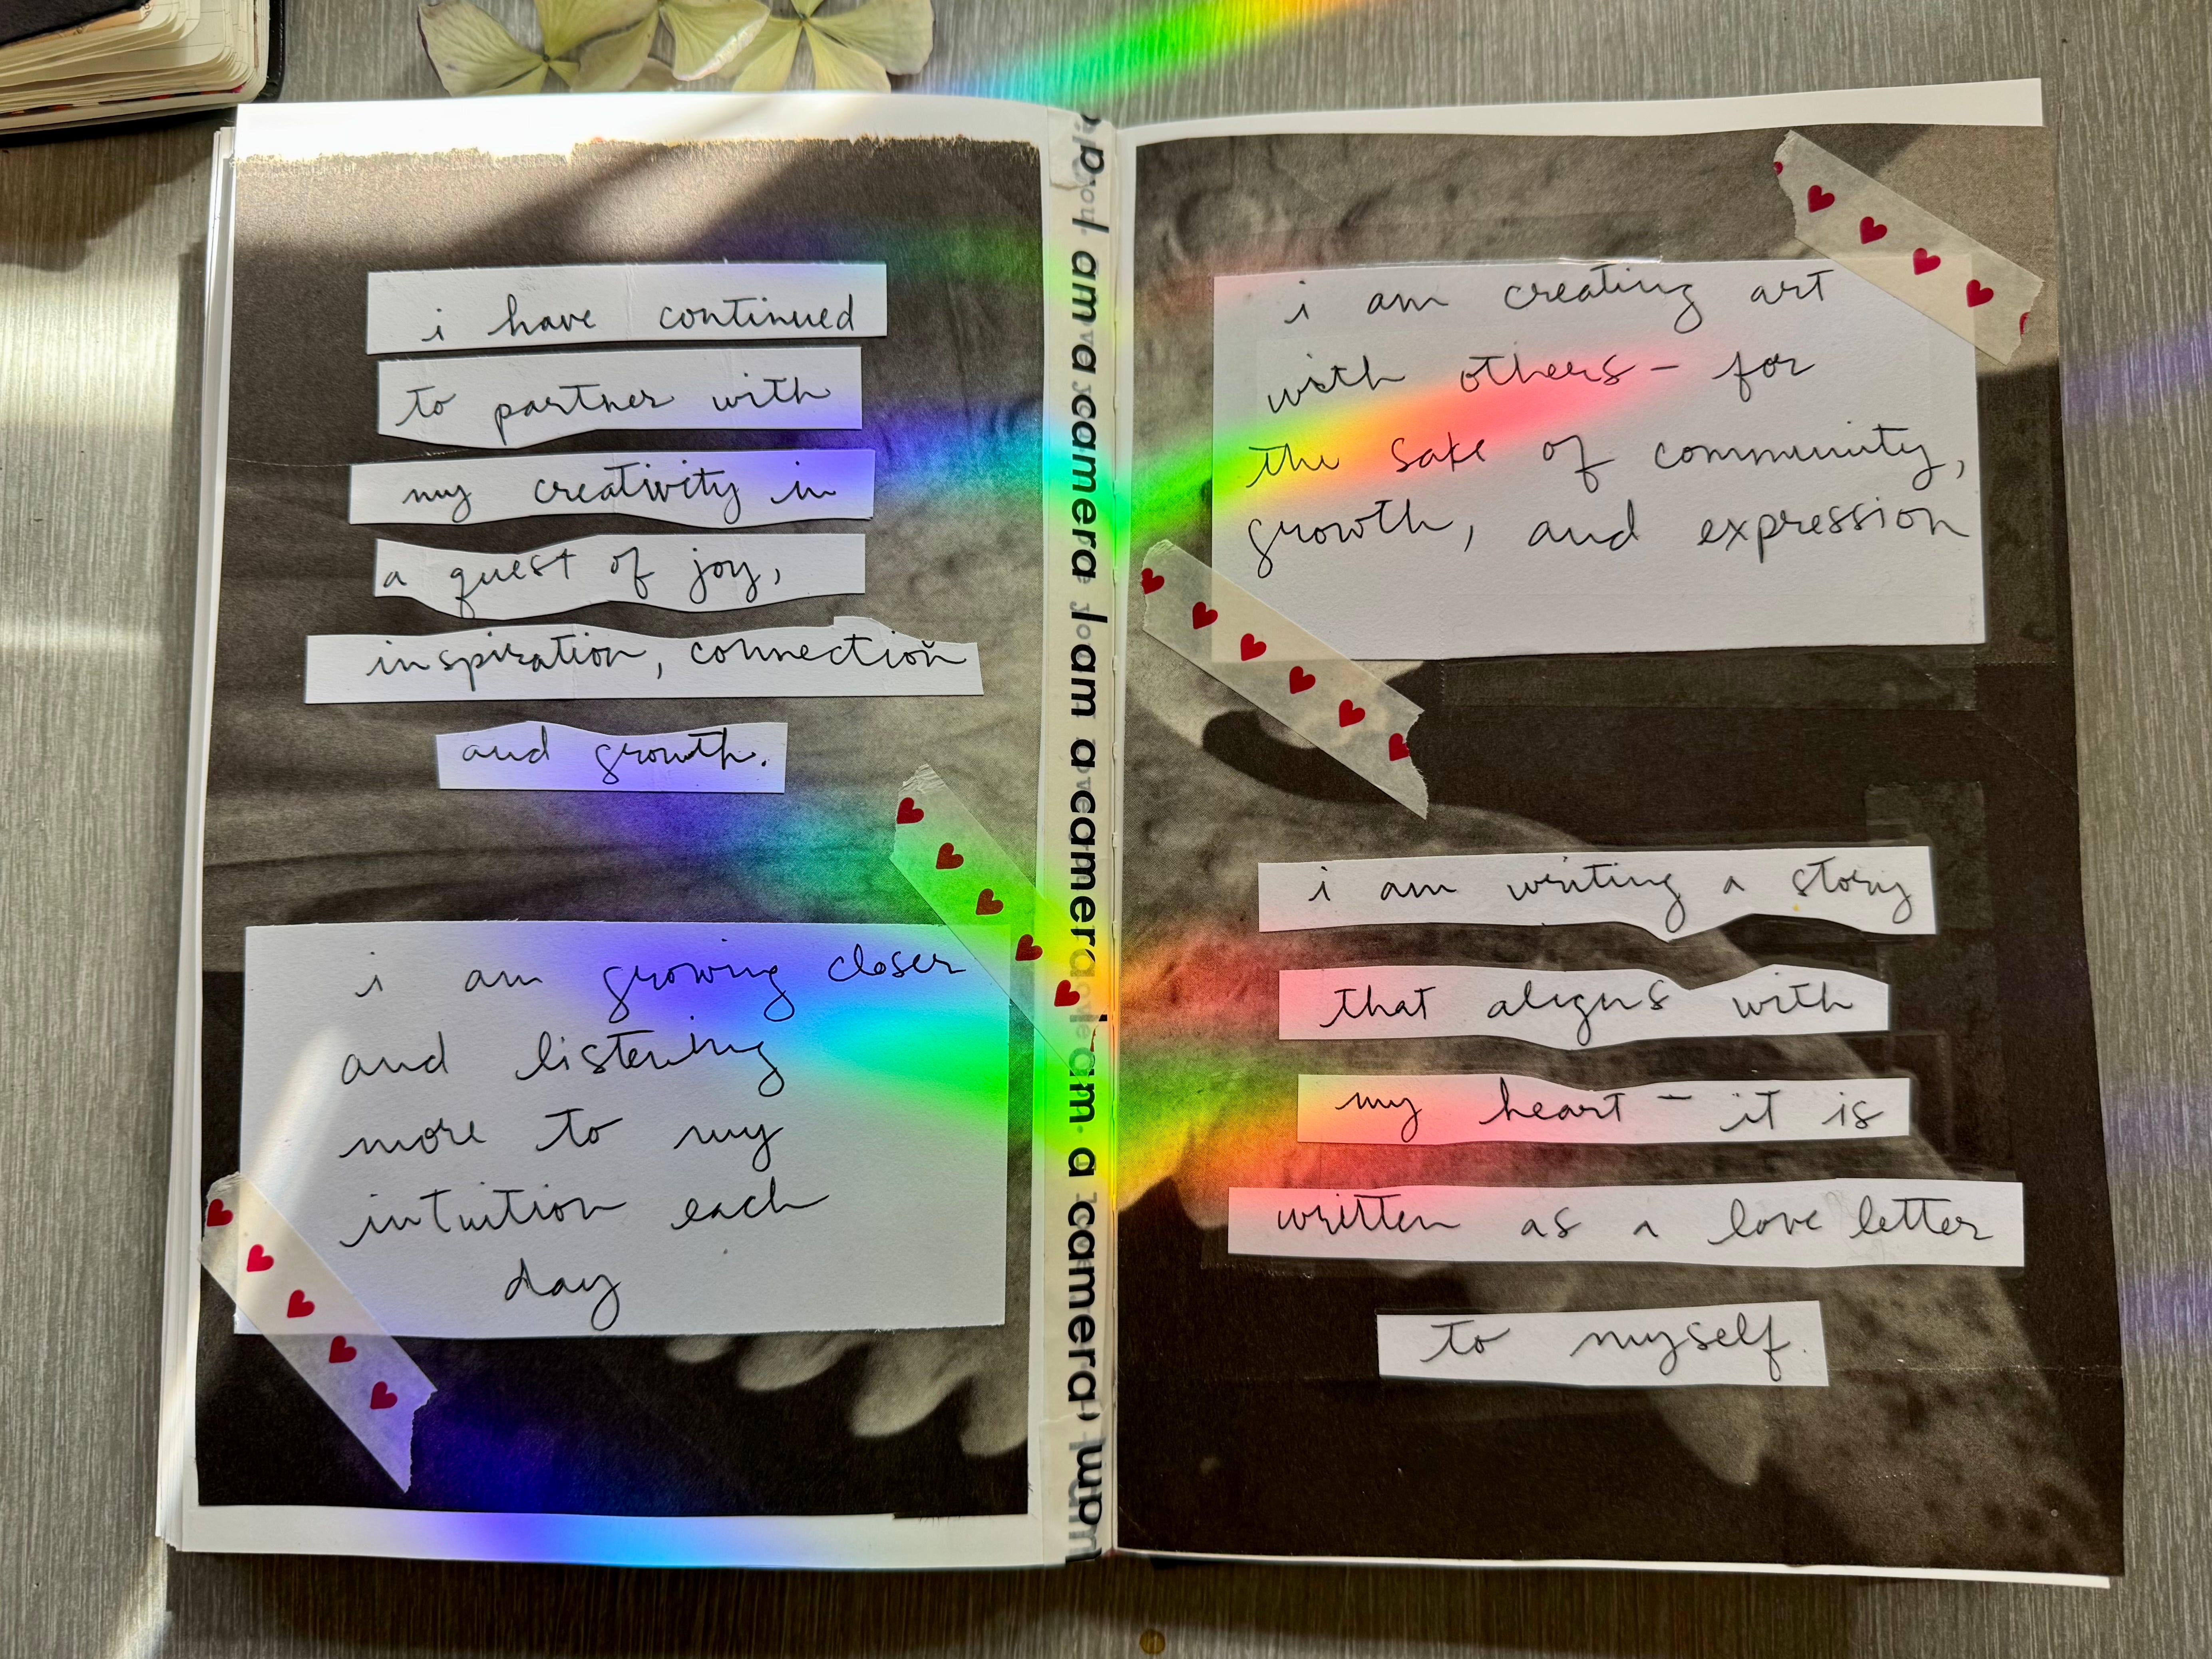 i have continued
to partner with
my creativity in
a quest of joy,
inspiration, connection
and growth.
i am growing closer
and listening
more to my
intuition each
day
I am a camera I am a camera am a camera
i am creating art
with others - for
the sake of community,
growth, and expression
i am writing a story
that aligns with
my heart - it is
written as a love letter
to myself.